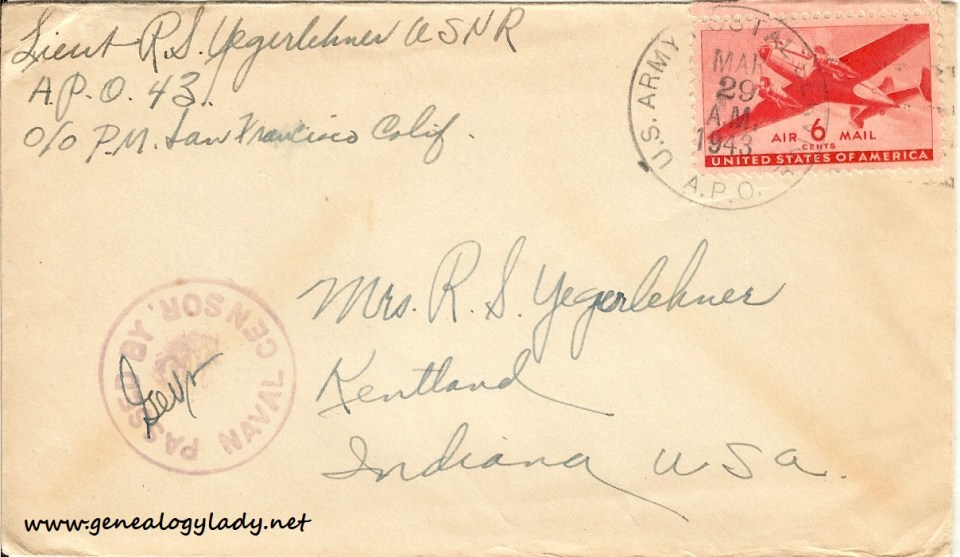 Lieut R.S. Yegerlehner USNR
A.P.O. 43.
c/o P.M. San Francisco Calif.
U.S. ARMY POSTAL SERVICE
MAR
29
A.M.
1943
A.P.O.
AIR 6 MAIL
CENTS
UNITED STATES OF AMERICA
Mrs. R. S. Yegerlehner
Kentland
Indiana USA.
PASSED BY NAVAL CENSOR
www.genealogylady.net